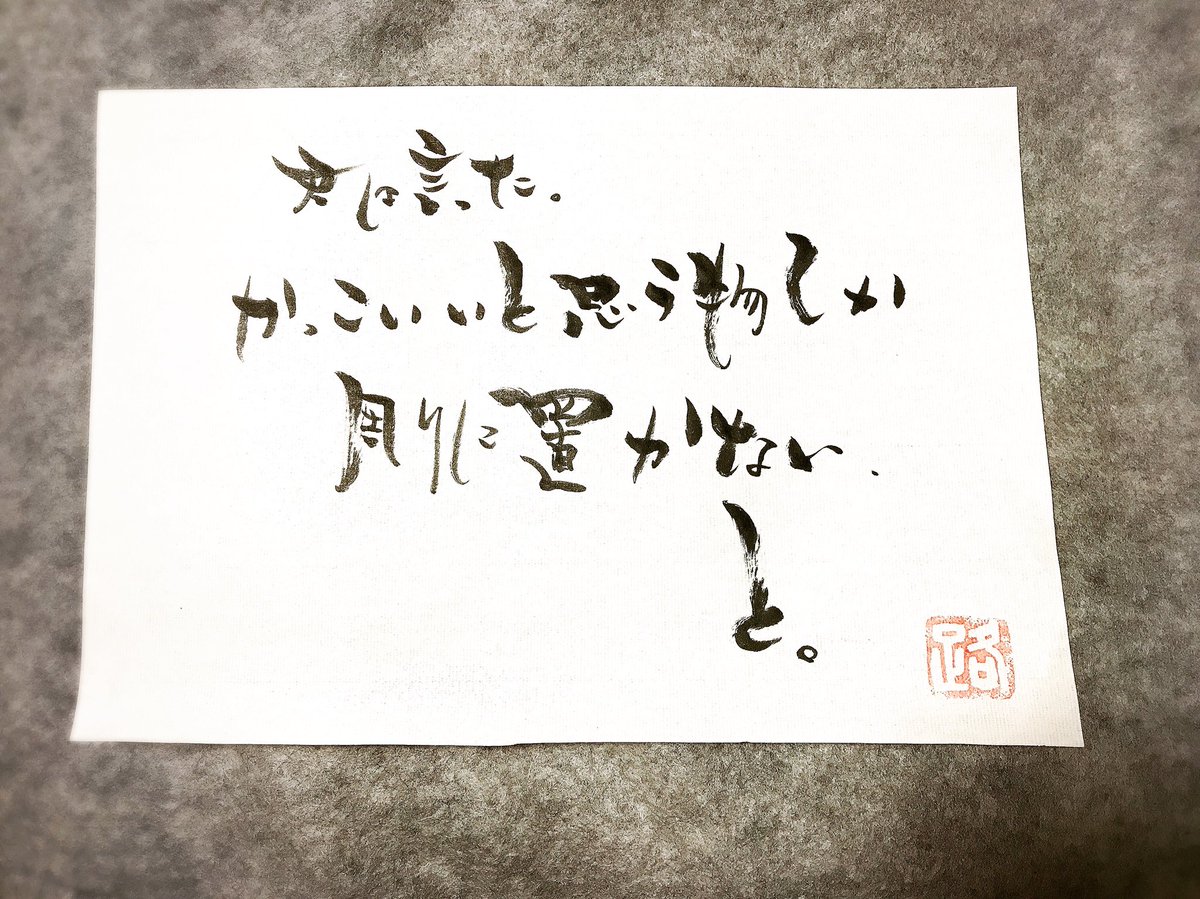 君は言った。
かっこいいと思う物しか
周りに置かない、
と。
路